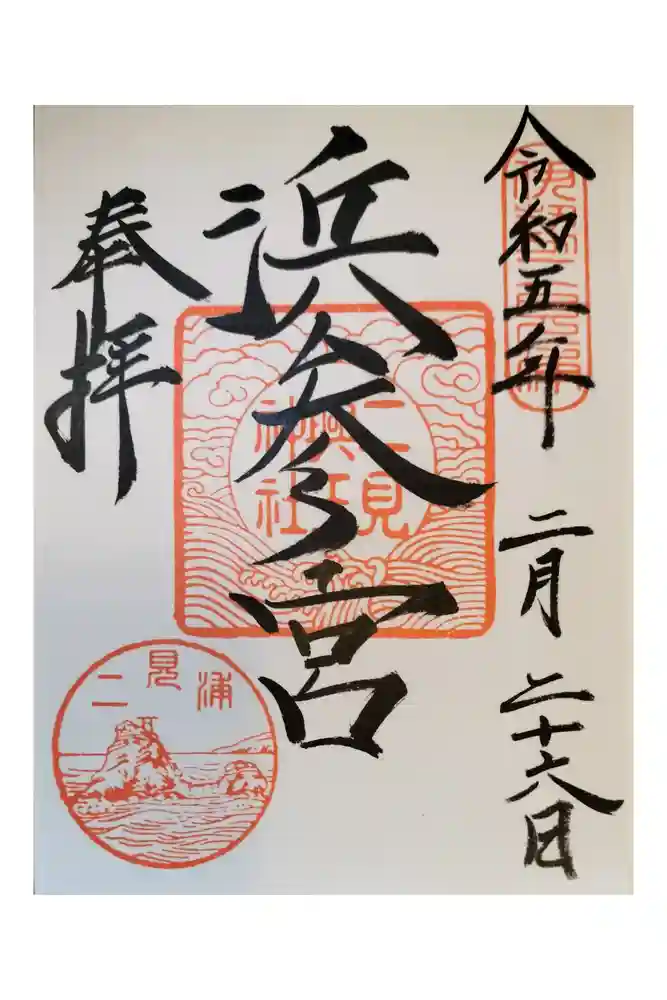 令和五年 二月二十六日
浜参宮
二見
興玉
神社
奉拝
二見浦